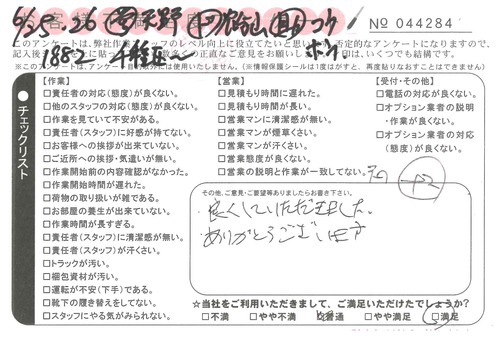 № 044284
このアンケートは、弊社作
スタッフのレベル向上に役立てたいと思い
否定的なアンケートになりますので、
正直なご意見をお願いし
いつでも結構です。
※このアンケートは、
作業以外には使用いたしません。(※情報保護シールは1度はがすと、再度貼りなおすことはできません)
チェックリスト
【作業】
□責任者の対応(態度)が良くない。
□他のスタッフの対応(態度)が良くない。
□作業を見ていて不安がある。
□責任者(スタッフ)に好感が持てない。
□お客様への挨拶が出来ていない。
□ご近所への挨拶・気遣いが無い。
□作業開始前の内容確認がなかった。
□作業開始時間が遅れた。
□荷物の取り扱いが雑である。
□お部屋の養生が出来ていない。
□作業時間が長すぎる。
□責任者(スタッフ)に清潔感が無い。
□責任者(スタッフ)が汗くさい。
□トラックが汚い。
□梱包資材が汚い。
□運転が不安(下手)である。
□靴下の履き替えをしてない。
□スタッフにやる気がみられない。
【営業】
□見積もり時間に遅れた。
□見積もり時間が長い。
□営業マンに清潔感が無い。
□営業マンが煙草くさい。
□営業マンが汗くさい。
□営業態度が良くない。
□営業の説明と作業が一致してない。
【受付・その他】
□電話の対応が良くない。
□オプション業者の説明
・作業が良くない。
□オプション業者の対応
(態度)が良くない。
その他、ご意見・ご要望等ありましたらお書き下さい。
良くしていただきました。
ありがとうございます
☆当社をご利用いただきまして、ご満足いただけたでしょうか?
□不満 □やや不満 □普通 □やや満足 □満足